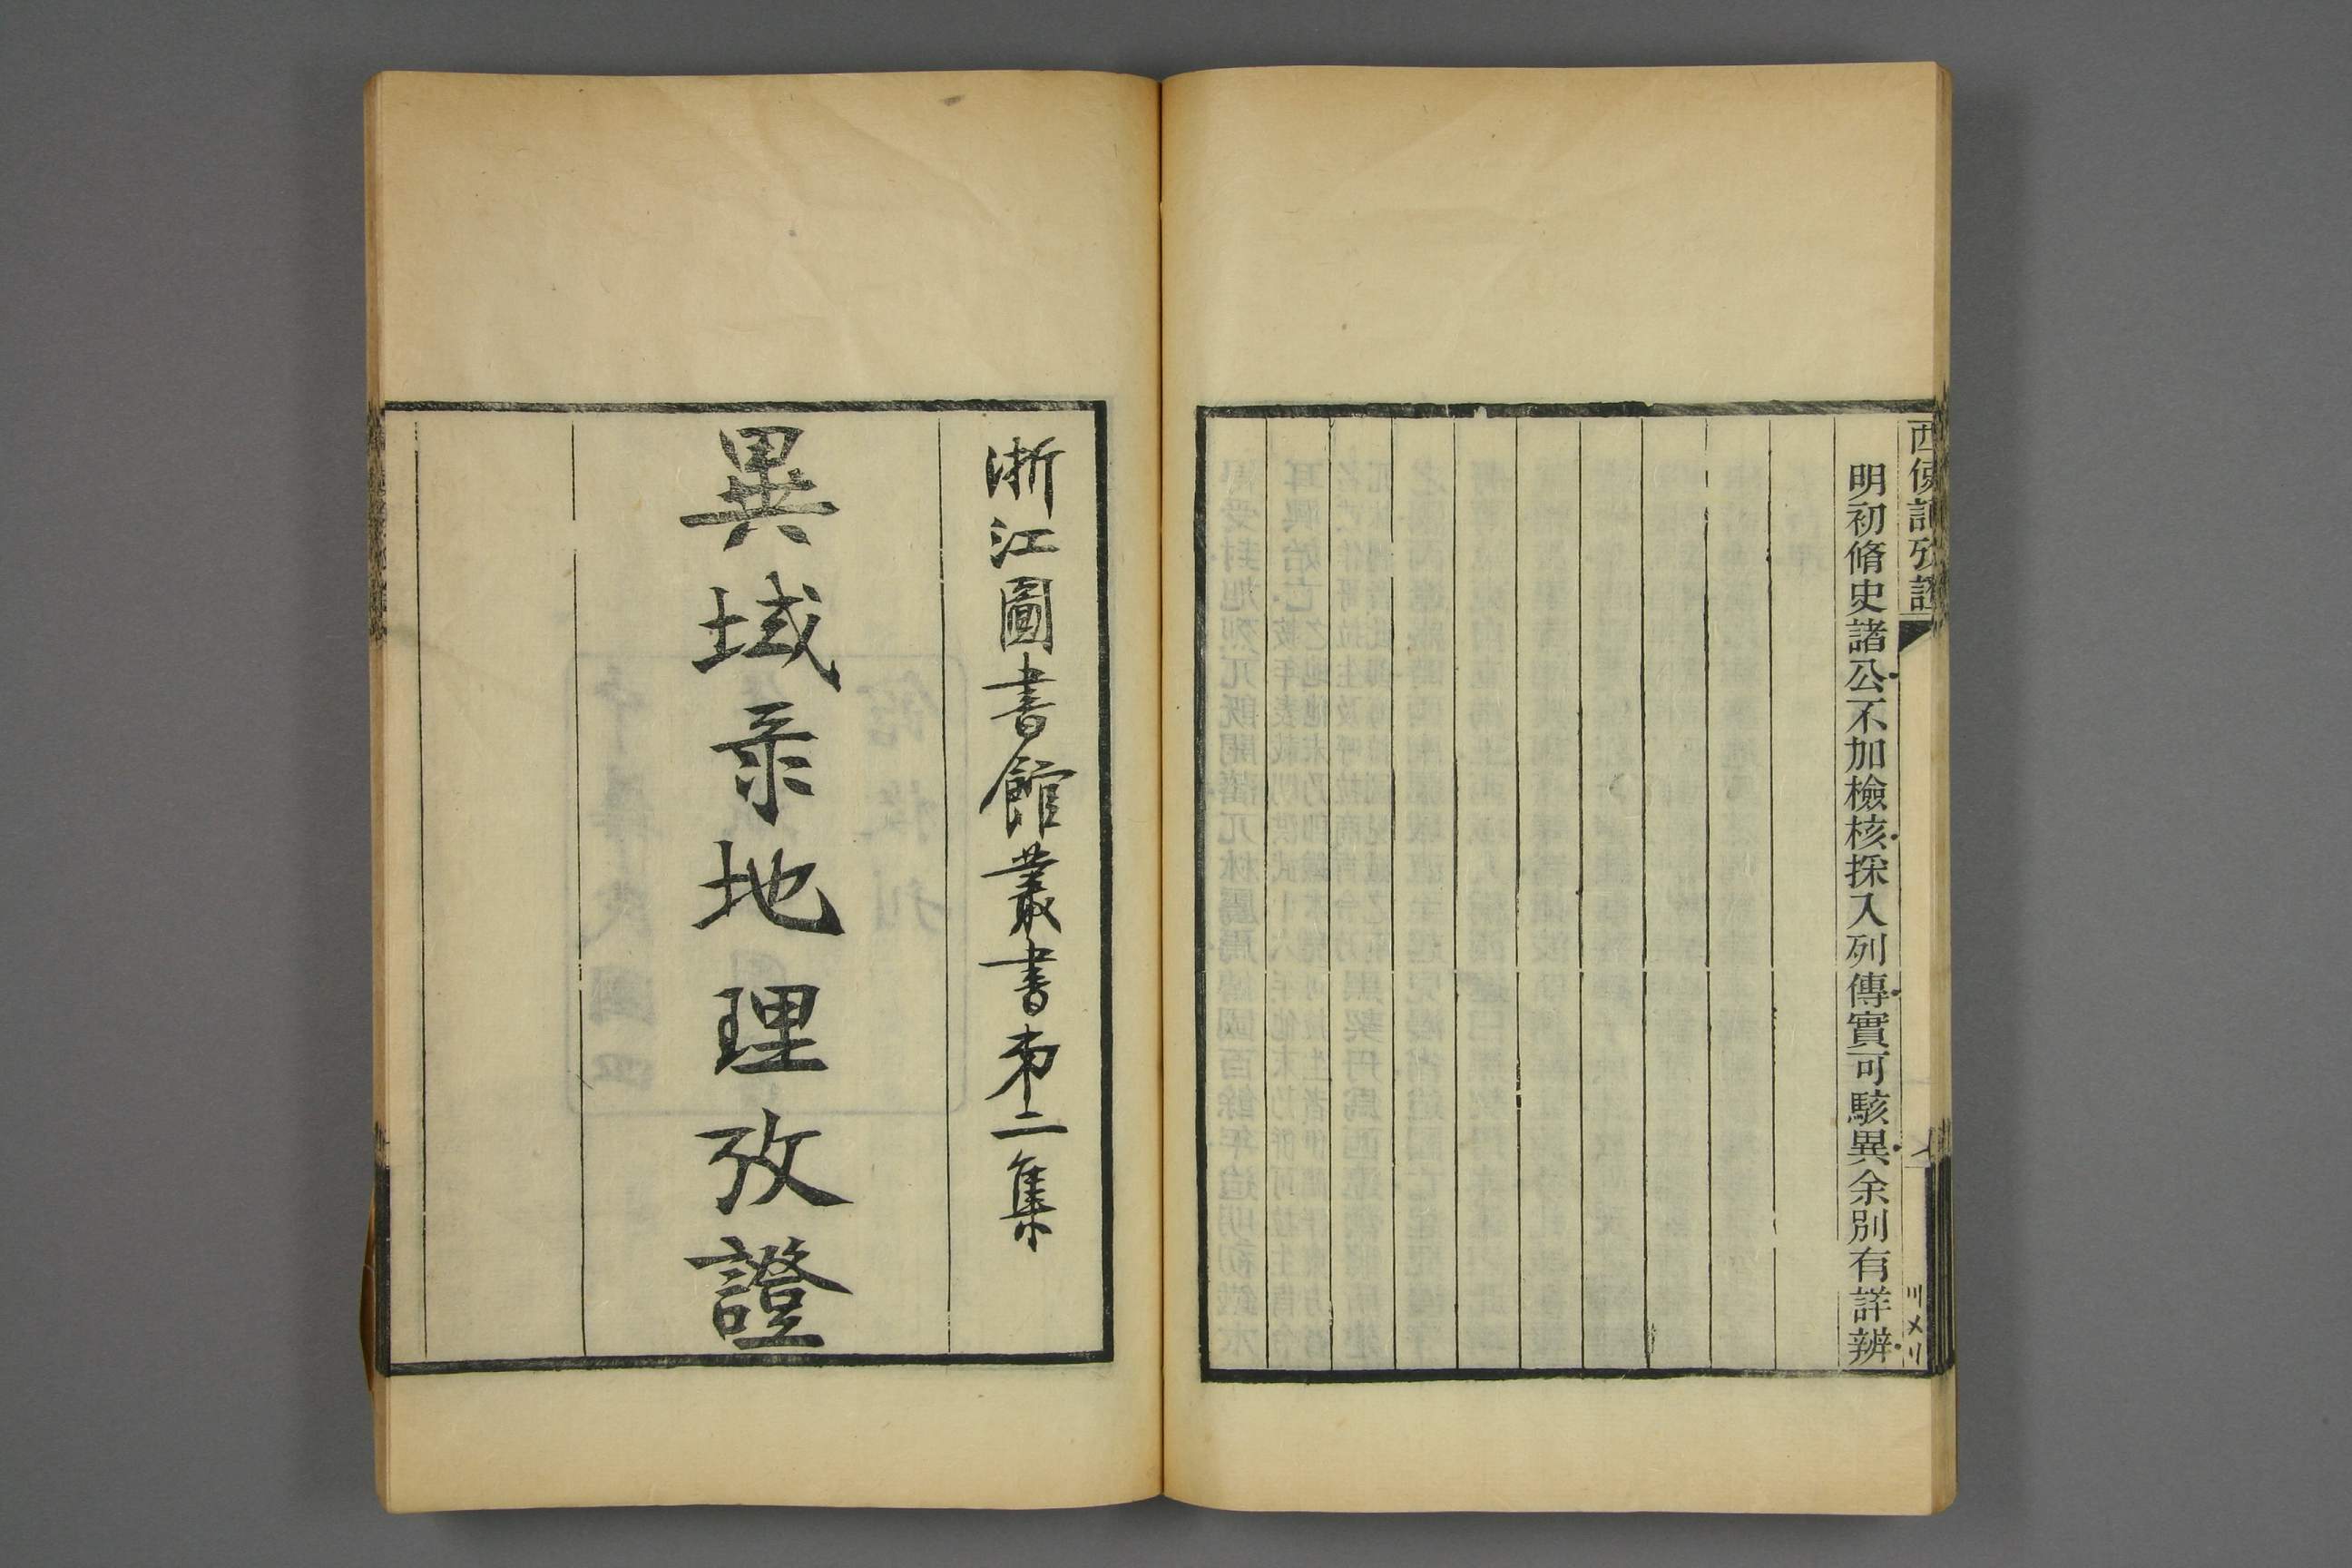 西使記攷證
明初脩史諸公不加檢核採入列傳實可駭異余別有詳辨
七
〣〤〢
浙江圖書館叢書苐二集
異域录地理攷證